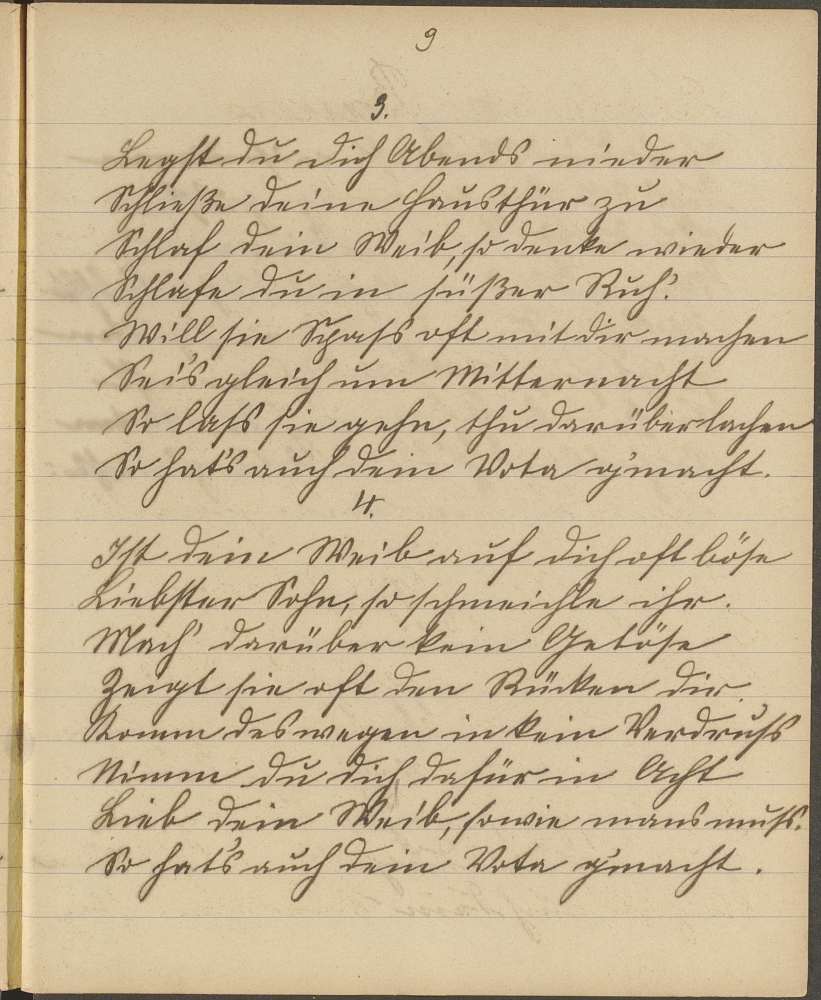 9
3.
Legst du dich Abends nieder
Schließe deine Hausthür zu
Schlaf dein Weib, so denke wieder
Schlafe du in süßer Ruh'.
Will sie Spass oft mit dir machen
Sei's gleich um Mitternacht
So lass sie gehn, thu darüber lachen
So hat's auch dein Vota g'macht.
4.
Ist dein Weib auf dich oft böse
Liebster Sohn, so schmeichle ihr.
Mach' darüber kein Getöse
Zeigt sie oft den Rücken dir
Komm deswegen in kein Verdruss
Nimm du dich dafür in Acht
Lieb dein Weib, sowie mans muss.
So hat's auch dein Vota g'macht.